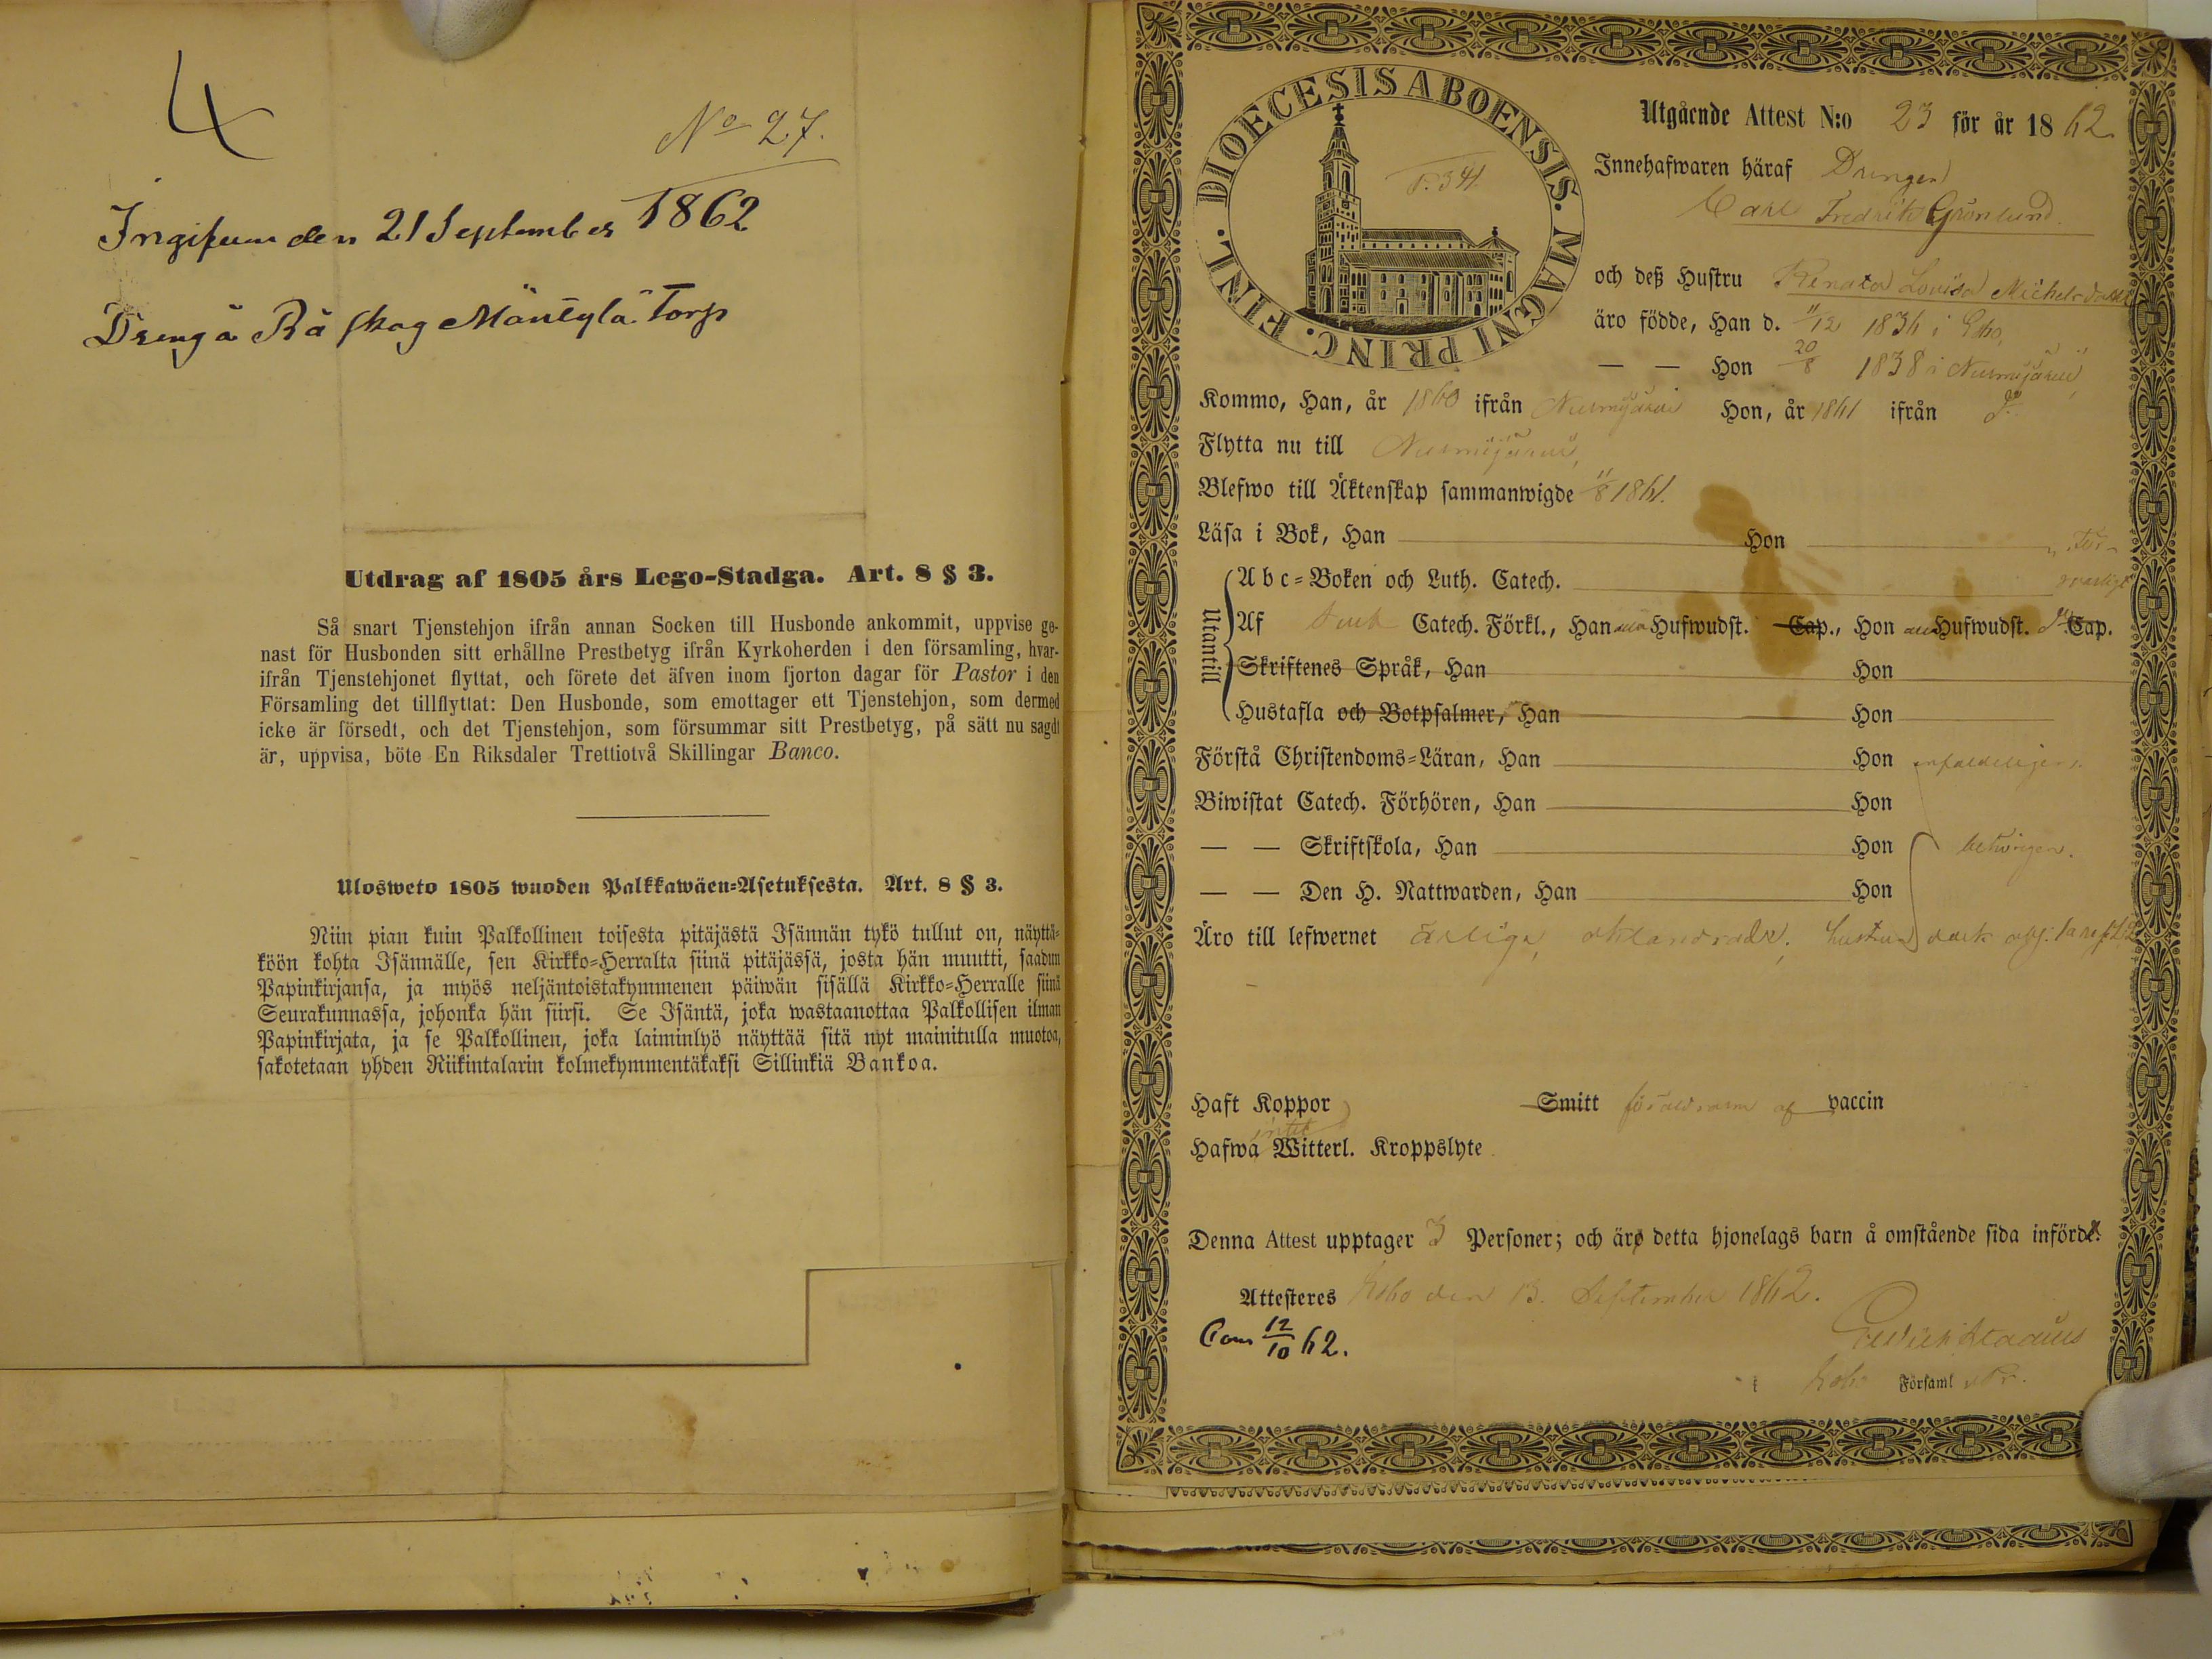 4
No 27.
den 21 September 1862
Dreng å Rå skog Mäntylä Torp
Utdrag af 1805 års Lego-Stadga. Art. 8 § 3.
Så snart Tjenstehjon ifrån annan Socken till Husbonde ankommit, uppvise ge-
nast för Husbonden sitt erhållne Prestbetyg ifrån Kyrkoherden i den församling, hvar-
ifrån Tjenstehjonet flyttat, och förete det äfven inom fjorton dagar för Pastor i den
Församling det tillflyttat: Den Husbonde, som emottager ett Tjenstehjon, som dermed
icke är försedt, och det Tjenstehjon, som försummar sitt Prestbetyg, på sätt nu sagdt
är, uppvisa, böte En Riksdaler Trettiotvå Skillingar Banco.
Ulosweto 1805 wuoden Palkkawäen-Asetuksesta. Art. 8 § 3.
Niin pian kuin Palkollinen toisesta pitäjästä Isännän tykö tullut on, näyttä-
köön kohta Isännälle, sen Kirkko-Herralta siinä pitäjässä, josta hän muutti, saadun
Papinkirjansa, ja myös neljäntoistakymmenen päiwän sisällä Kirkko-Herralle siinä
Seurakunnassa, johonka hän siirsi. Se Isäntä, joka wastaanottaa Palkollisen ilman
Papinkirjata, ja se Palkollinen, joka laiminlyö näyttää sitä nyt mainitulla muotoa,
sakotetaan yhden Riikintalarin kolmekymmentäkaksi Sillinkiä Bankoa.
DIOECESIS ABOENSIS. MAGNI PRINC. FINL.
P. 341.
Utgående Attest N:o 23 för år 1862.
Innehafwaren häraf Drengen
Carl Fredrik Grönlund
och deß Hustru Renata Lovisa Michelsdotter
äro födde, Han d. 11/12 1836 i
— — Hon 20/8 1838 i Nurmijärvi
Kommo, Han, år 1860 ifrån Nurmijärvi Hon, år 1861 ifrån do
Flytta nu till Nurmijärvi
Blefwo till Äktenskap sammanwigde 11/8 1861.
Läsa i Bok, Han Hon för-
Utantill
Abc-Boken och Luth. Catech. svarligt
Af Catech. Förkl., Han Hufwudst. Cap., Hon Hufwudst. do Cap.
Skriftenes Språk, Han Hon
Hustafla och Botpsalmer, Han Hon
Förstå Christendoms-Läran, Han Hon enfaldeligen.
Biwistat Catech. Förhören, Han Hon
— — Skriftskola, Han Hon behörigen.
— — Den H. Nattwarden, Han Hon
Äro till lefwernet ärliga, oklandrade, hustrun
Haft Koppor Smitt af vaccin
intet
Hafwa Witterl. Kroppslyte
Denna Attest upptager 3 Personer; och äro detta hjonelags barn å omstående sida införde.
Attesteres den 13. September 1862.
Com 12/10 62.
i Församl